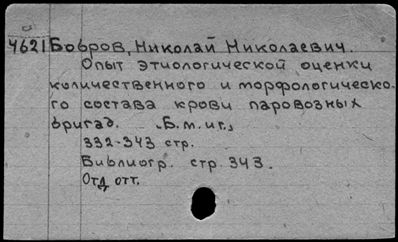 4621 Бобров, Николай Николаевич.
Опыт этиологической оценки
количественного и морфологическо-
го состава крови паровозных
бригад. Б.м.и г.,
332-343 стр.
Библиогр. стр. 343.
Отд отт.